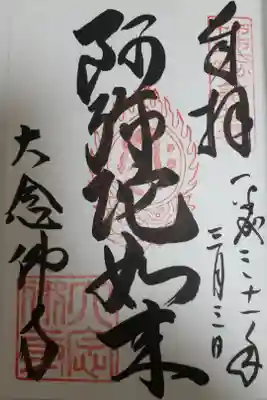 奉拝
平成三十一年
三月三日
阿弥陀如来
大念佛寺